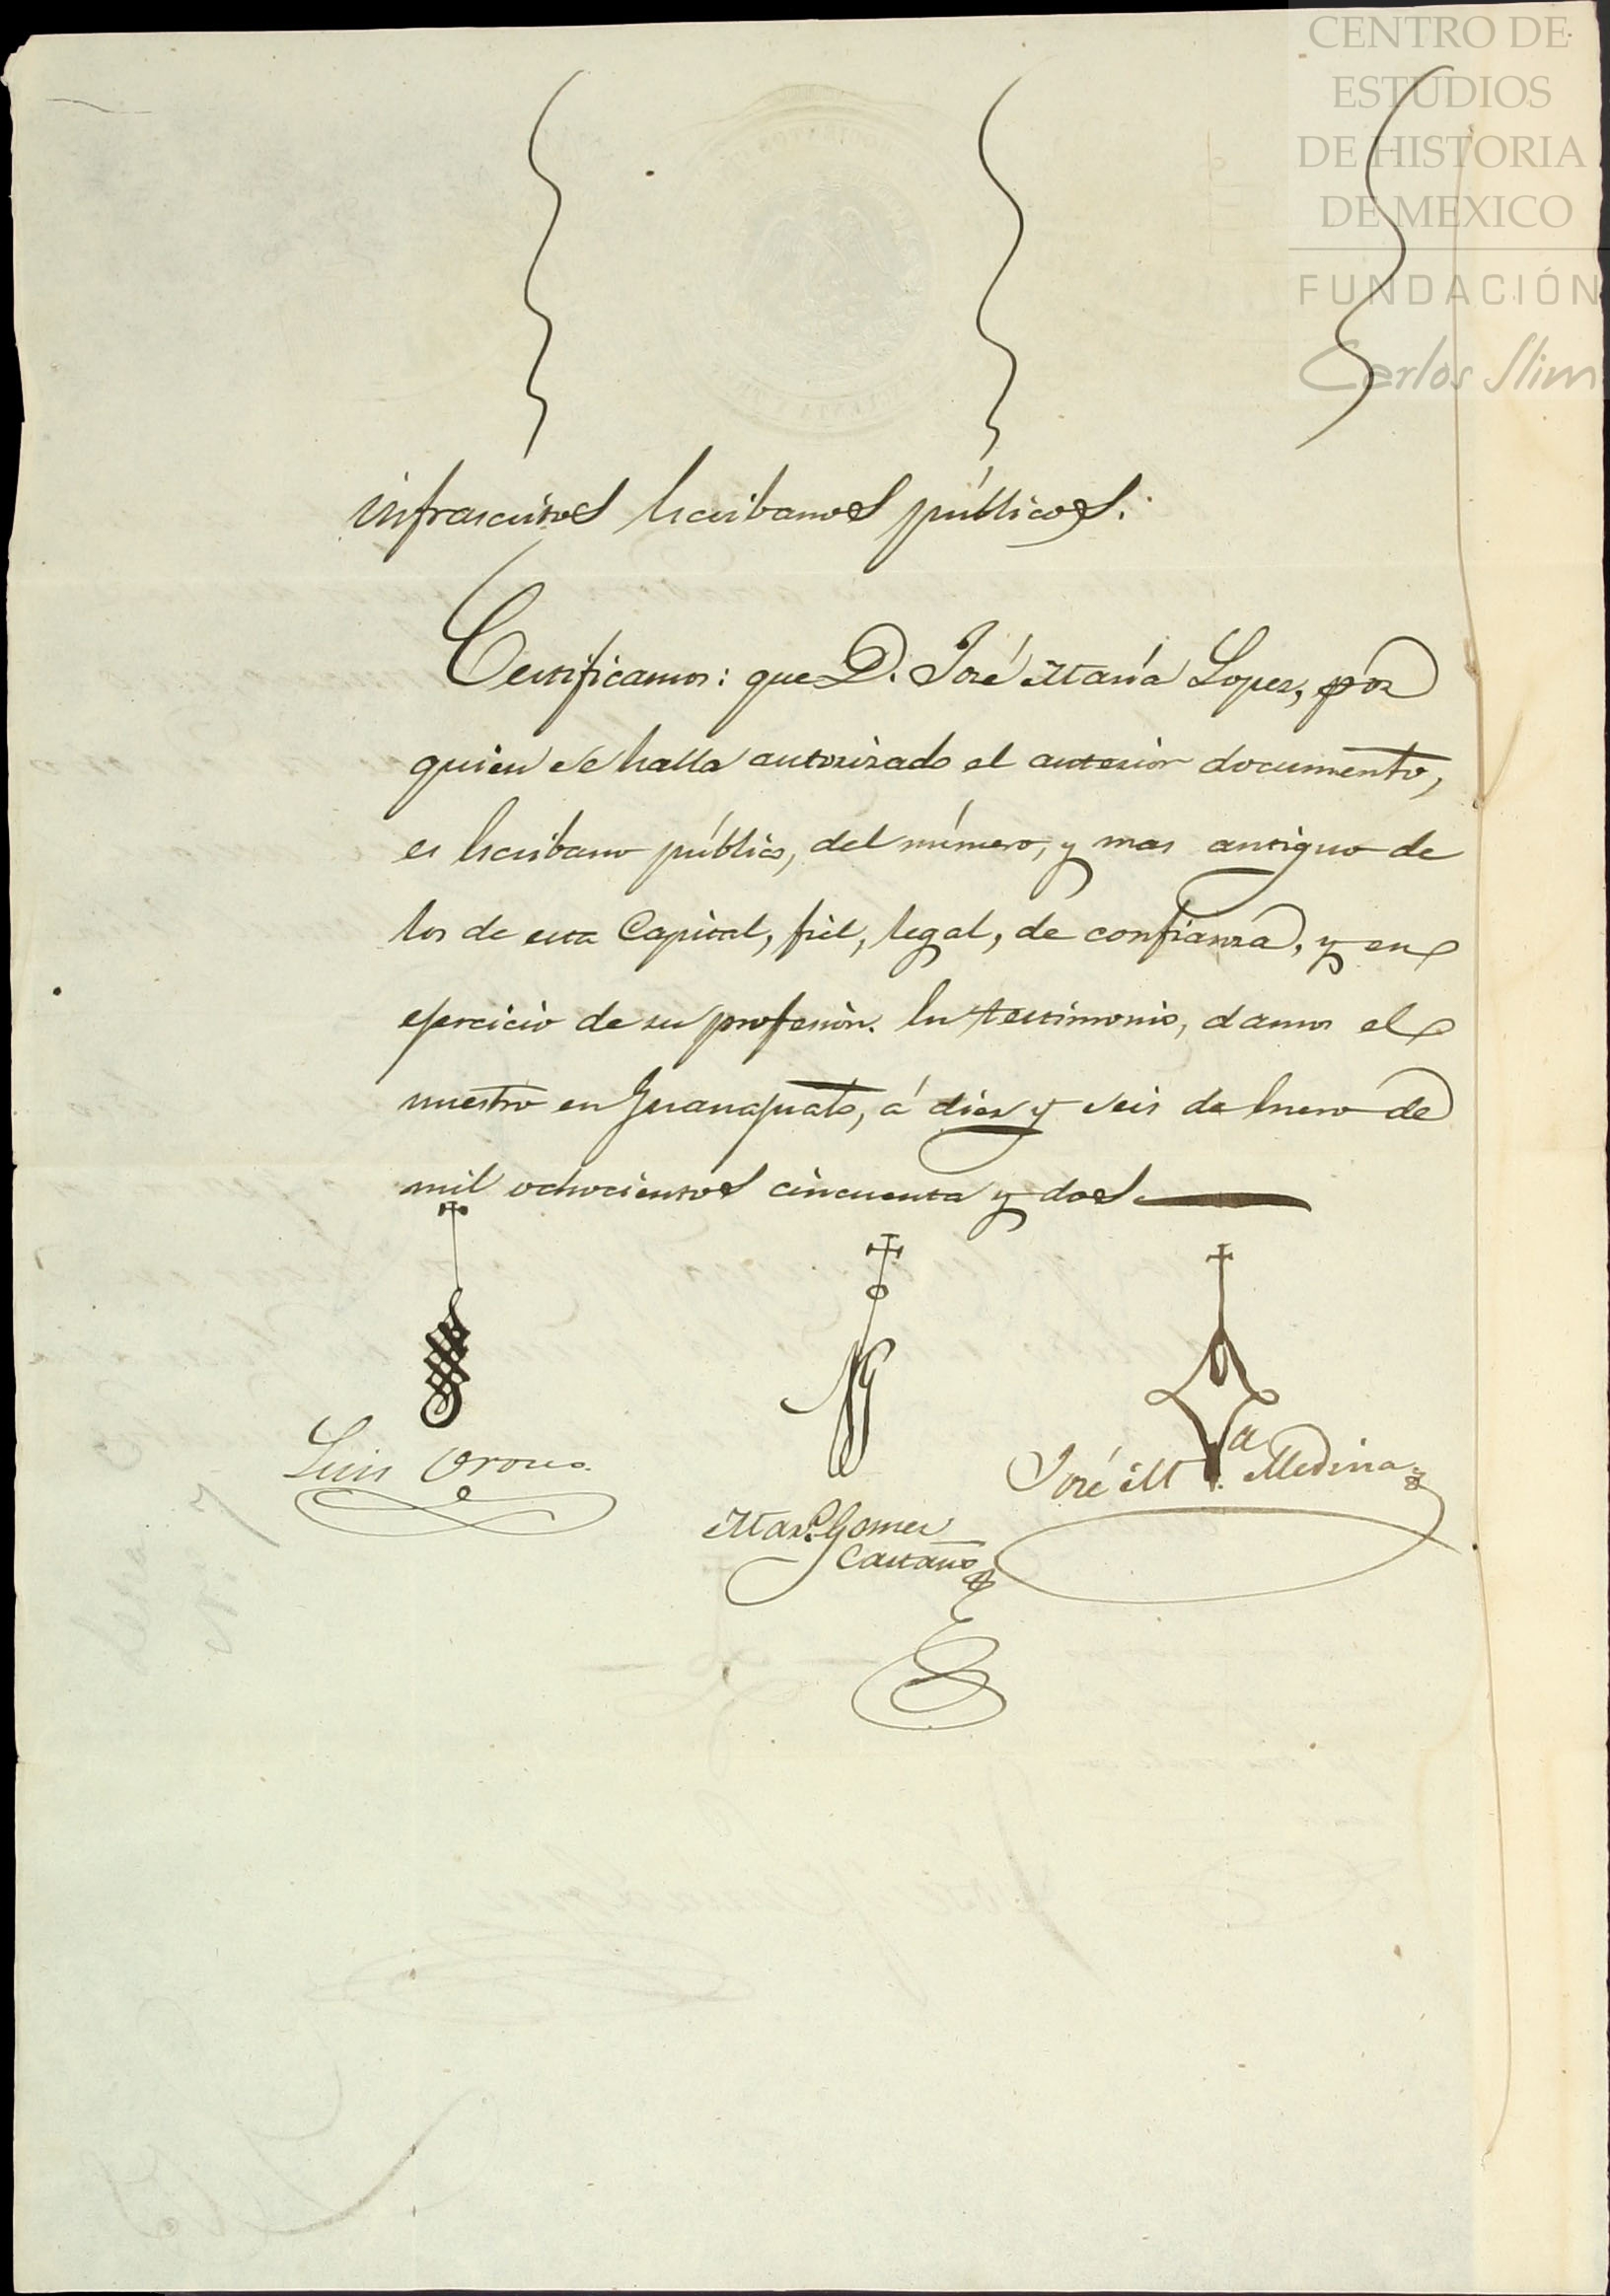 CENTRO DE
ESTUDIOS
DE HISTORIA
DE MEXICO
FUNDACIÓN
Carlos Slim
infrascritos Escribanos públicos:
Certificamos: que D. José María Lopez, por
quien se halla autorizado el anterior documento,
es Escribano público, del número, y mas antiguo de
los de esta Capital, fiel, legal, de confianza, y en
ejercicio de su profesión. En testimonio, damos el
nuestro en Guanajuato, á diez y seis de Enero de
mil ochocientos cincuenta y dos
Luis Orozco.
José M.ª Medina
Mar.º Gomez
Castaño